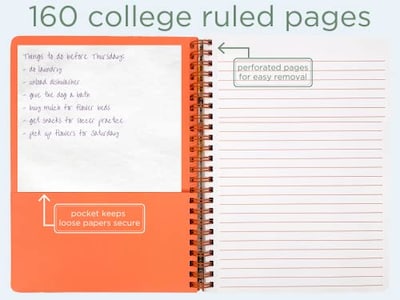 160 college ruled pages
Things to do before Thursday:
- do laundry
- unload dishwasher
- give the dog a bath
- buy mulch for flower beds
- get snacks for soccer practice
- pick up flowers for Saturday
perforated pages
for easy removal
pocket keeps
loose papers secure